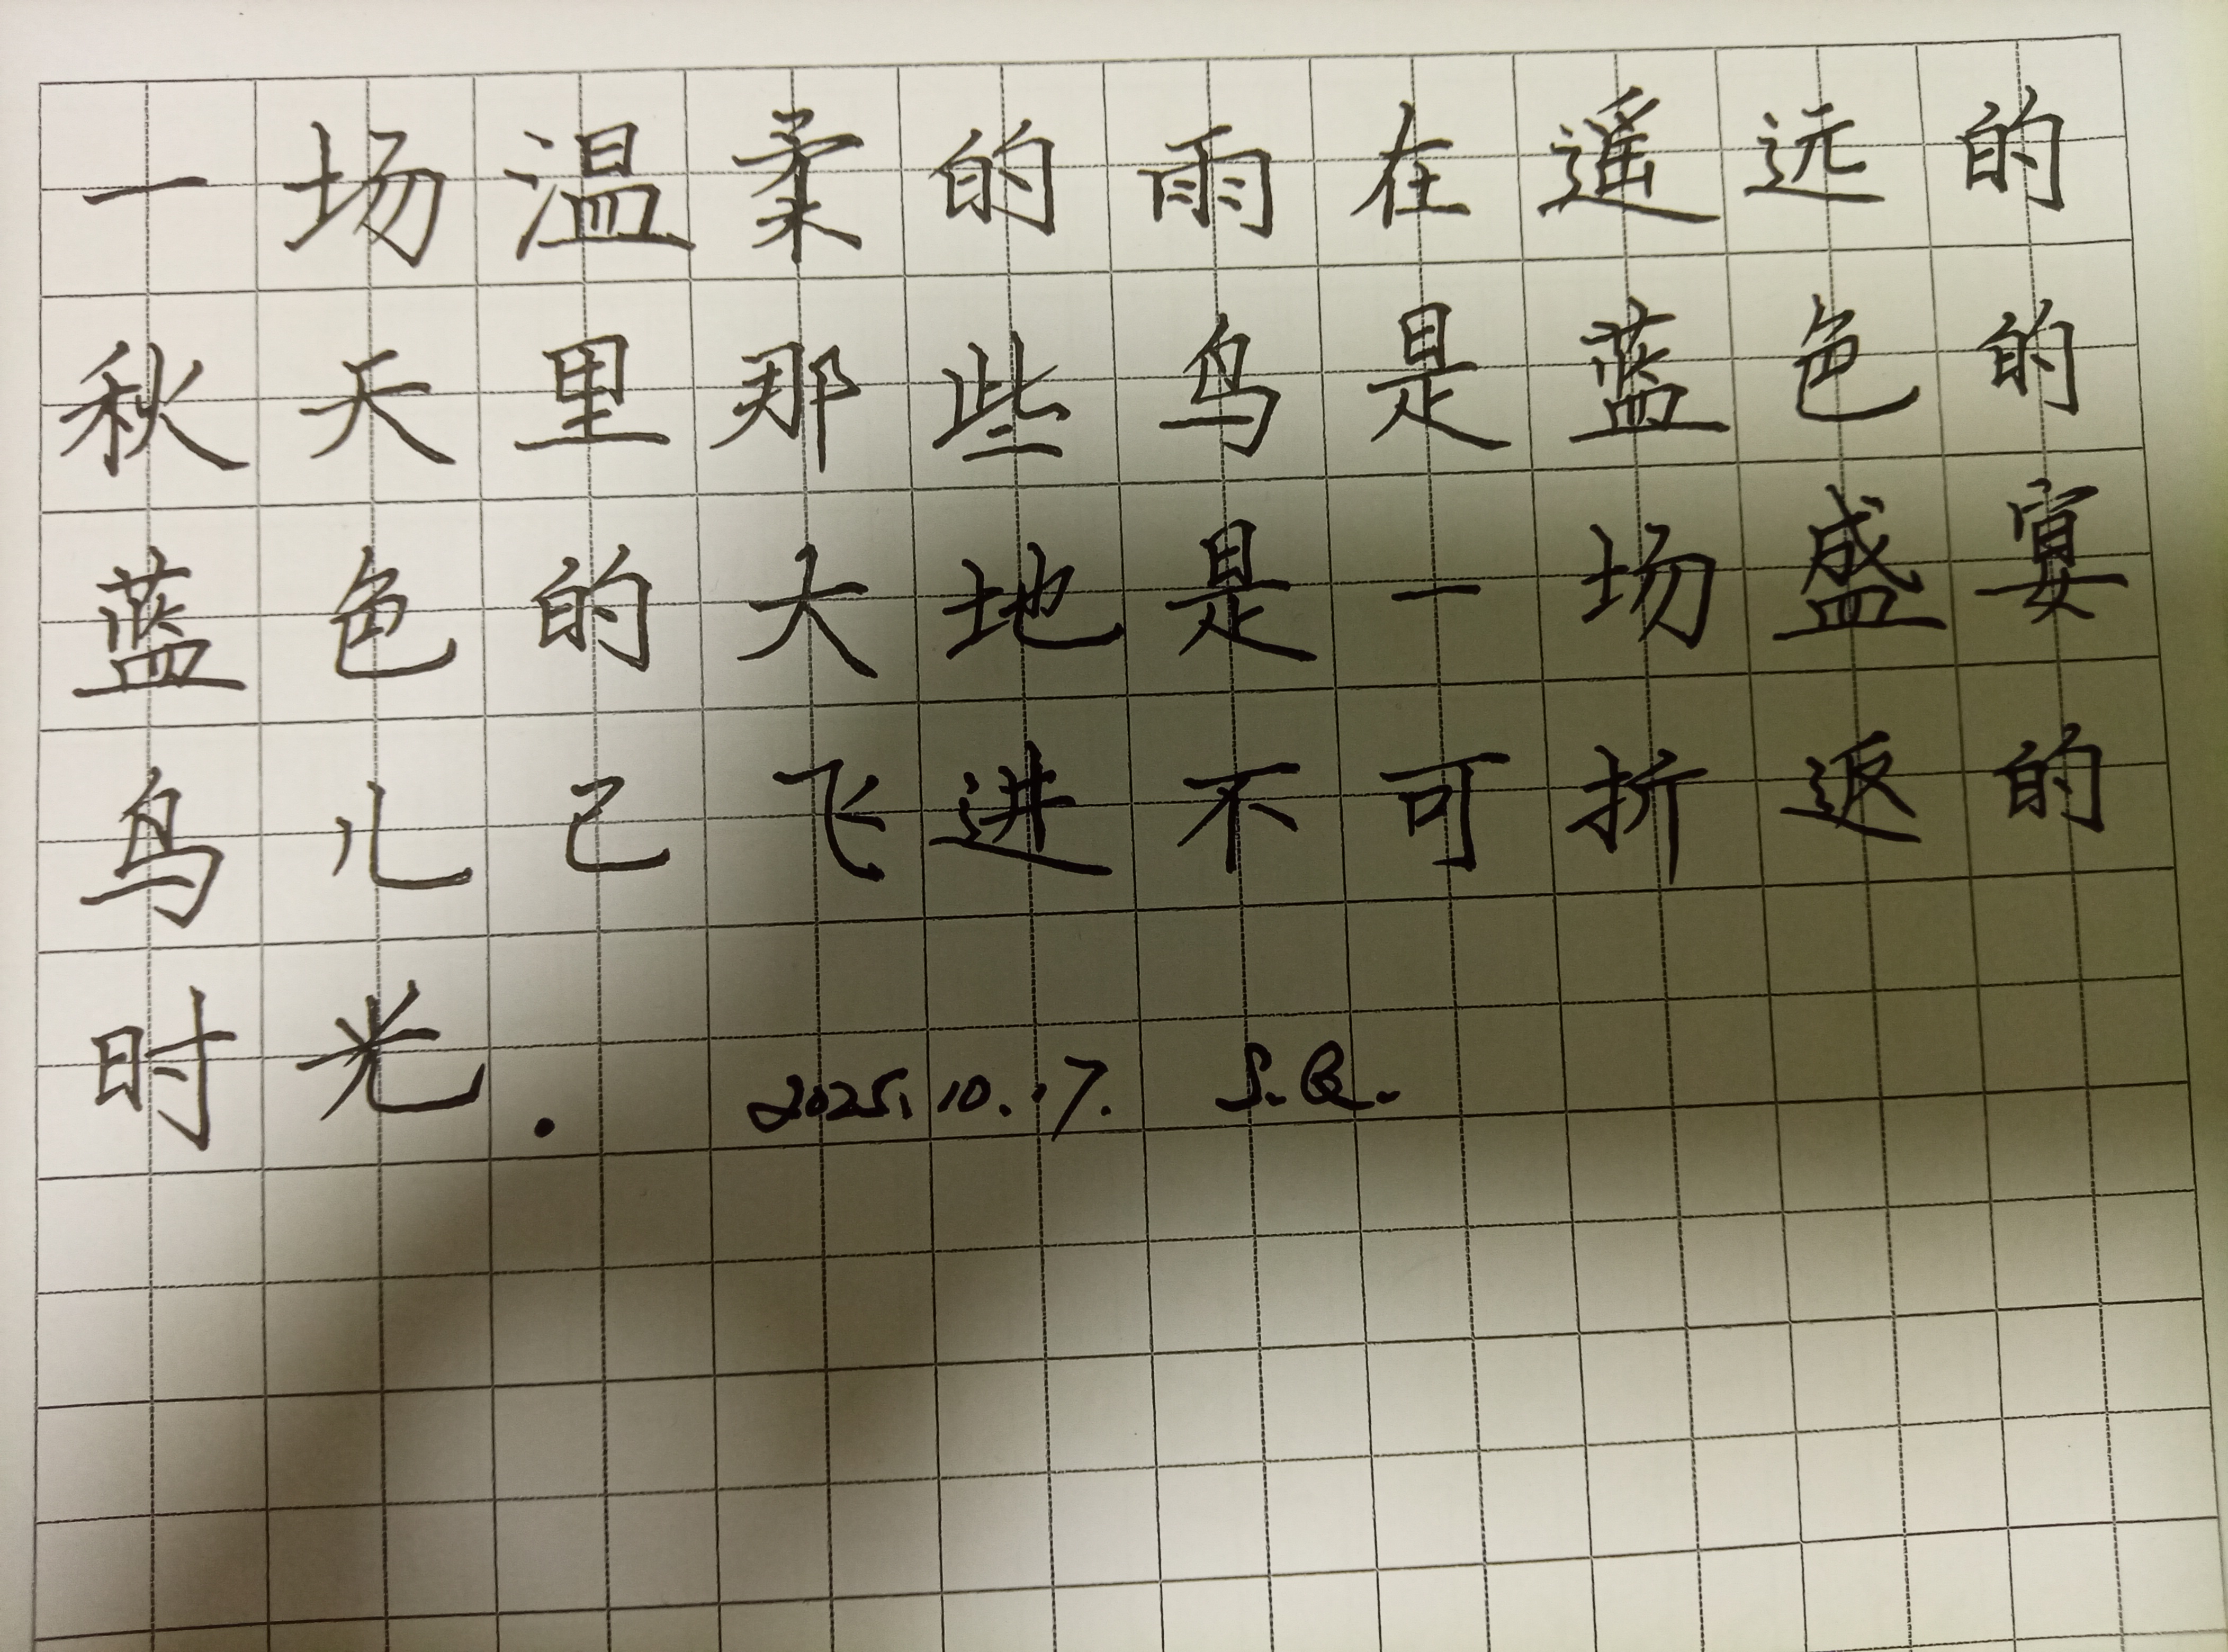 一场温柔的雨在遥远的
秋天里那些鸟是蓝色的
蓝色的大地是一场盛宴
鸟儿已飞进不可折返的
时光. 2025.10.17. S.Q.